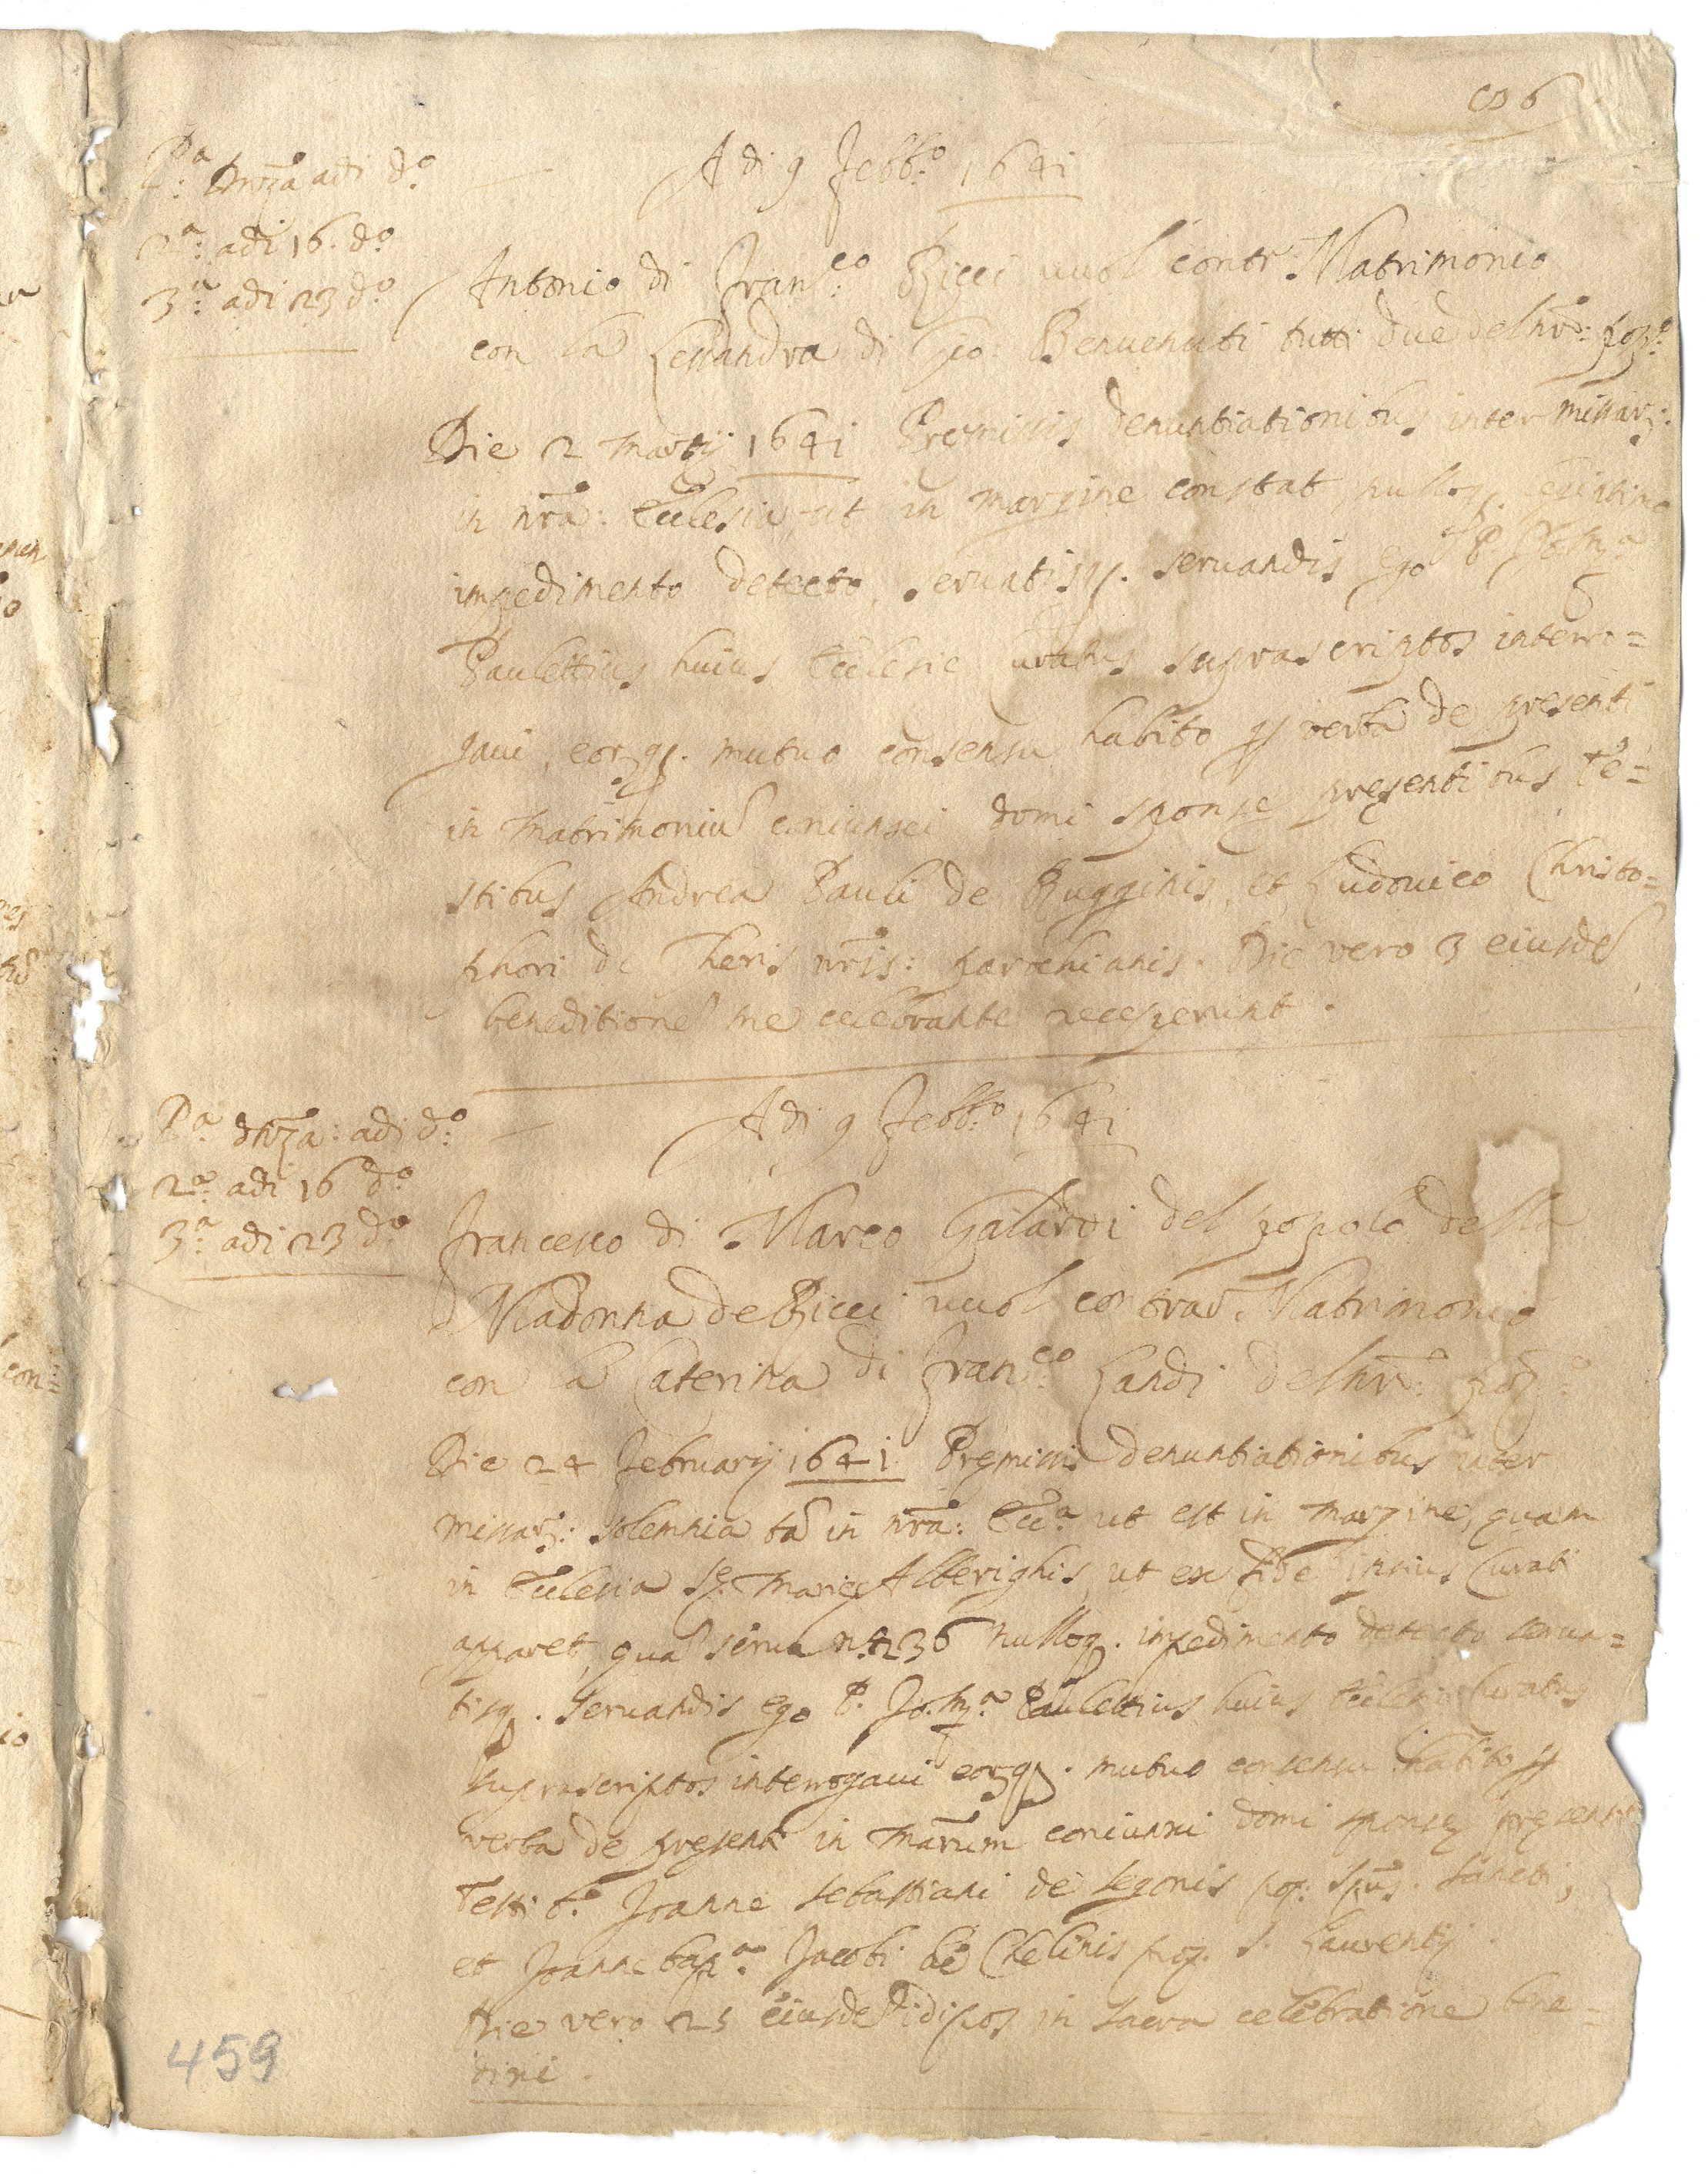 606
Pa: dnza adi do:
2a: adi 16. do
3a: adi 23 do
A di 9 Febb:o 1641
Antonio di Fran:co Ricci vuol contr: Matrimonio
con la Lessandra di Gio: Benuenuti tutti due del nro: pop:o
Die 2 Martij 1641 Premissis denuntiationibus inter missar:
in nrã: Ecclesia, ut in margine constat, nulloq. legitimo
impedimento detecto, seruatisq. seruandis ego P. Jo:
Paulettius huius Ecclesie Curatus suprascriptos interro=
gaui, eorq. mutuo consensu habito p verba de presenti
in Matrimoniũ coniunxi domi sponse presentibus te=
stibus Andrea Pauli de Rugginis, et Ludouico Christo=
phori de Theris nris: parochianis. Die vero 3 eiusdẽ
beneditionẽ me celebrante receperunt.
Pa dnza: adi do:
2a: adi 16 do
3a: adi 23 do
A di 9 Febb:o 1641
Francesco di Marco Galardi del popolo della
Madonna de Ricci vuol contrar Matrimonio
con la Caterina di Fran:co Landi del nro: pop:o
Die 24 Februarij 1641. Premissis denuntiationibus inter
missar: solemnia tã in nrã: Ecc:a ut est in margine, quam
in Ecclesia Se: Marie Alberighis, ut ex fide ipsius Curati
apparet, quã seruo n.o 236 nulloq. impedimento detecto serua=
tisq. seruandis ego P. Jo: Paulettius huius Ecclesie Curatus
suprascriptos interrogaui eorq. mutuo consensu habito p
verba de present in Matrum coniunxi domi sponse present
Testib.o Joanne Sebastiani de Segonis pop: Spus. Sancti,
et Joanne bapta: Jacobi de Chelinis pop. S. Laurentij.
Die vero 25 eiusdẽ in sacra celebratione bene=
dixi.
459